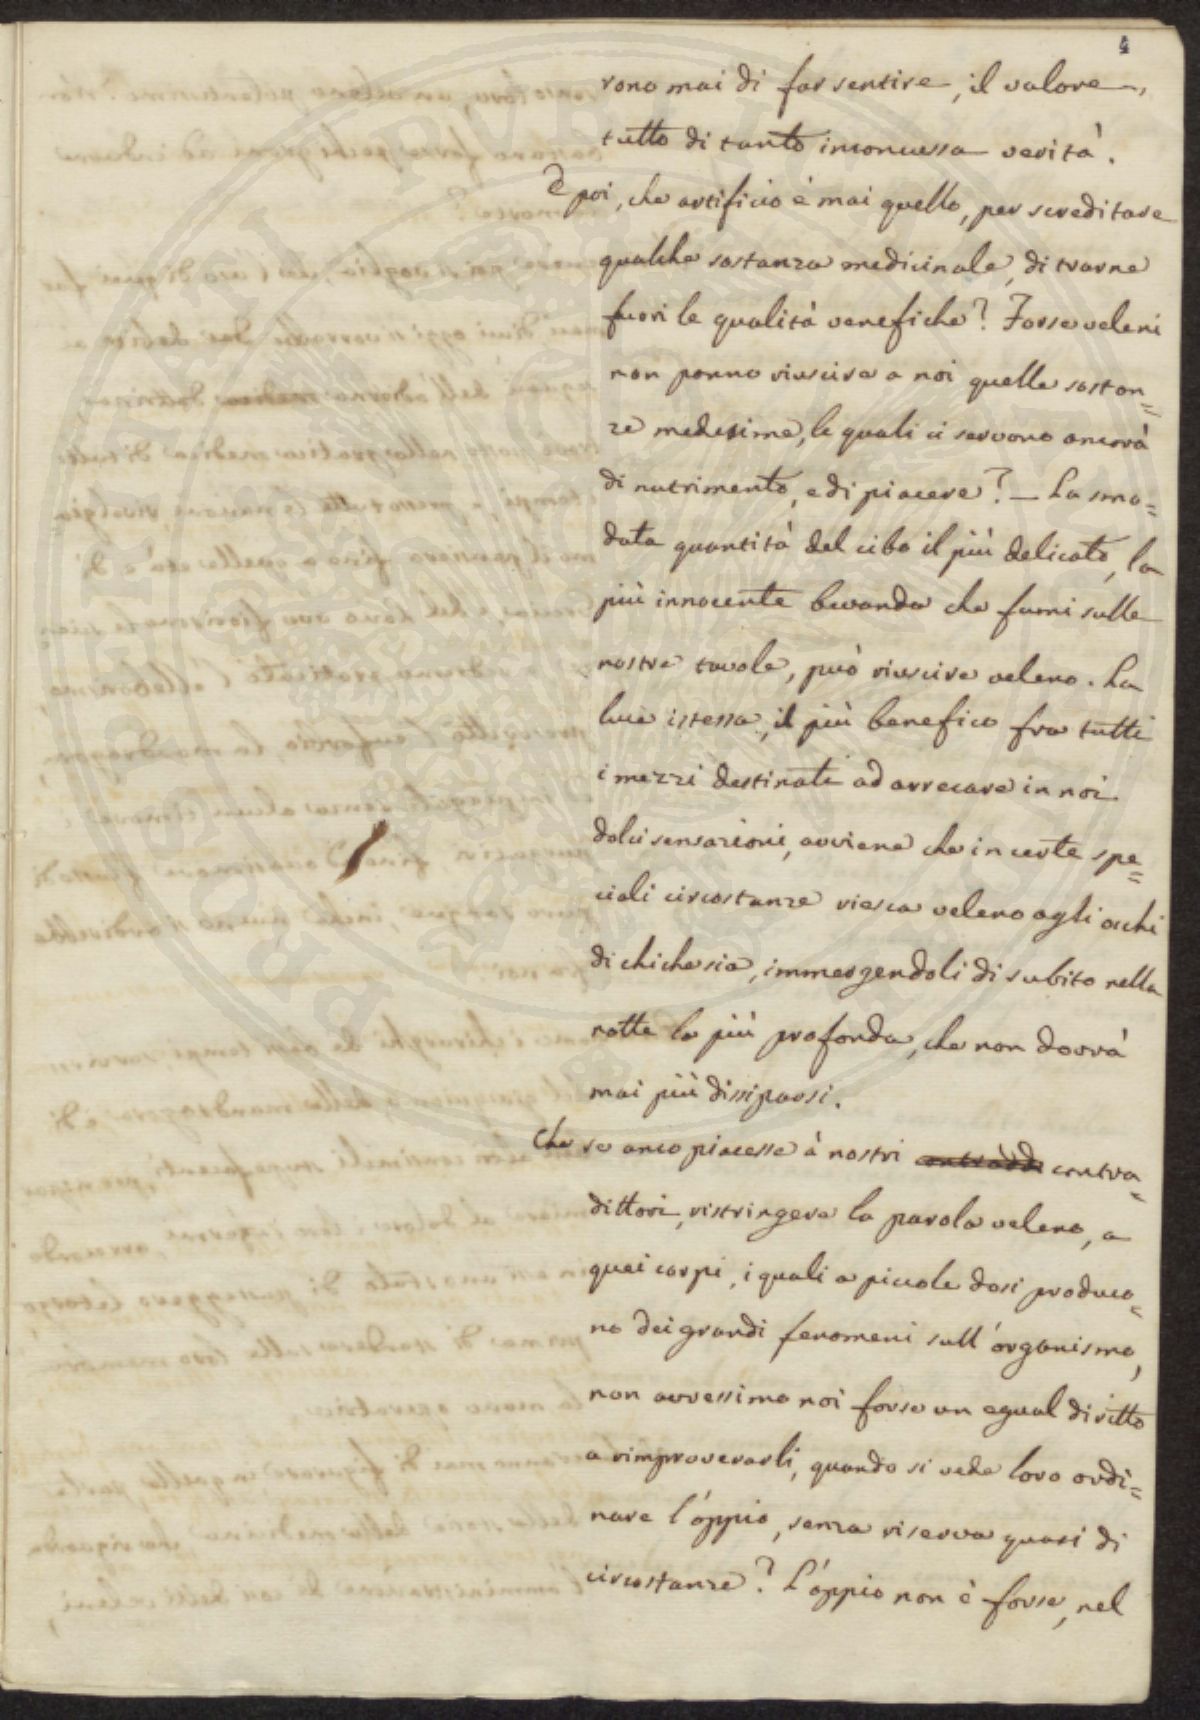 4
rono mai di far sentire, il valore
tutto di tanto inconcussa verità.
E poi, che artificio è mai quello, per screditare
qualche sostanza medicinale, di trarne
fuori le qualità venefiche? Forse veleni
non ponno riuscire a noi quelle sostan=
ze medesime, le quali ci servono ancora
di nutrimento, e di piacere? — La smo=
data quantità del cibo il più delicato, la
più innocente bevanda che fumi sulle
nostre tavole, può riuscire veleno. La
luce istessa, il più benefico fra tutti
i mezzi destinati ad arrecare in noi
dolci sensazioni, avviene che in certe spe=
ciali circostanze riesca veleno agli occhi
di chichesia, immergendoli di subito nella
notte la più profonda, che non dovrà
mai più dissiparsi.
Che se anco piacesse à nostri contradi contra=
dittori, ristringere la parola veleno, a
quei corpi, i quali a piccole dosi produco=
no dei grandi fenomeni sull'organismo,
non avressimo noi forse un egual diritto
a rimproverarli, quando si vede loro ordi=
nare l'oppio, senza riserva quasi di
circostanze? L'oppio non è forse, nel